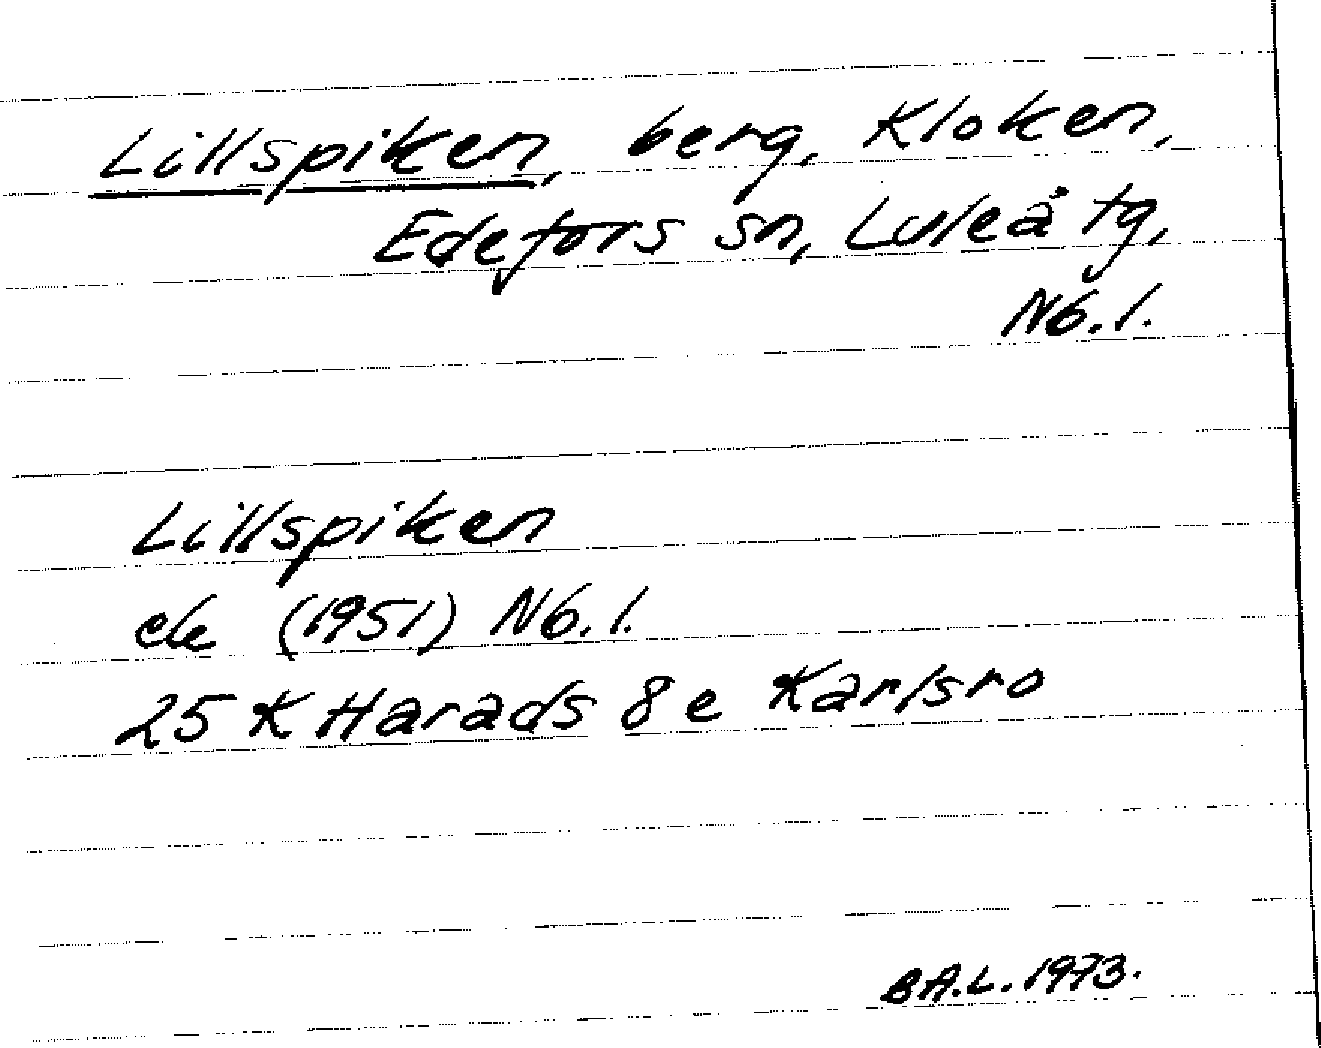 Lillspiken, berg, Kloken,
Edefors sn, Luleå tg,
Nb. l.
Lillspiken
ek (1951) Nb. l.
25 K Harads 8 e Karlsro
B A. L. 1973.